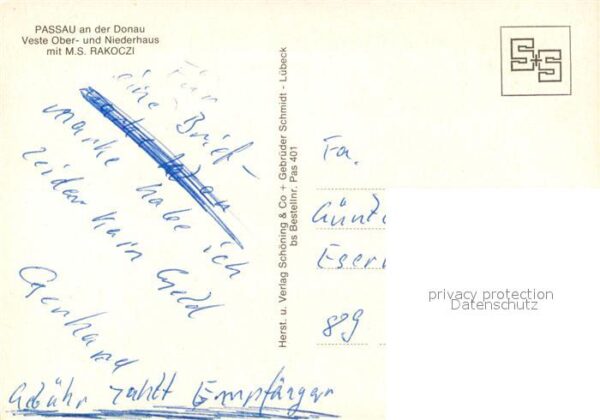 PASSAU an der Donau
Veste Ober- und Niederhaus
mit M.S. RAKOCZI
Für
eine Brief-
marke habe ich
leider kein Geld
Gerhard
Gebühr zahlt Empfänger
Herst. u. Verlag Schöning & Co + Gebrüder Schmidt - Lübeck
bs Bestellnr. Pas 401
S+S
Fa.
Günt
Eser
89
privacy protection
Datenschutz